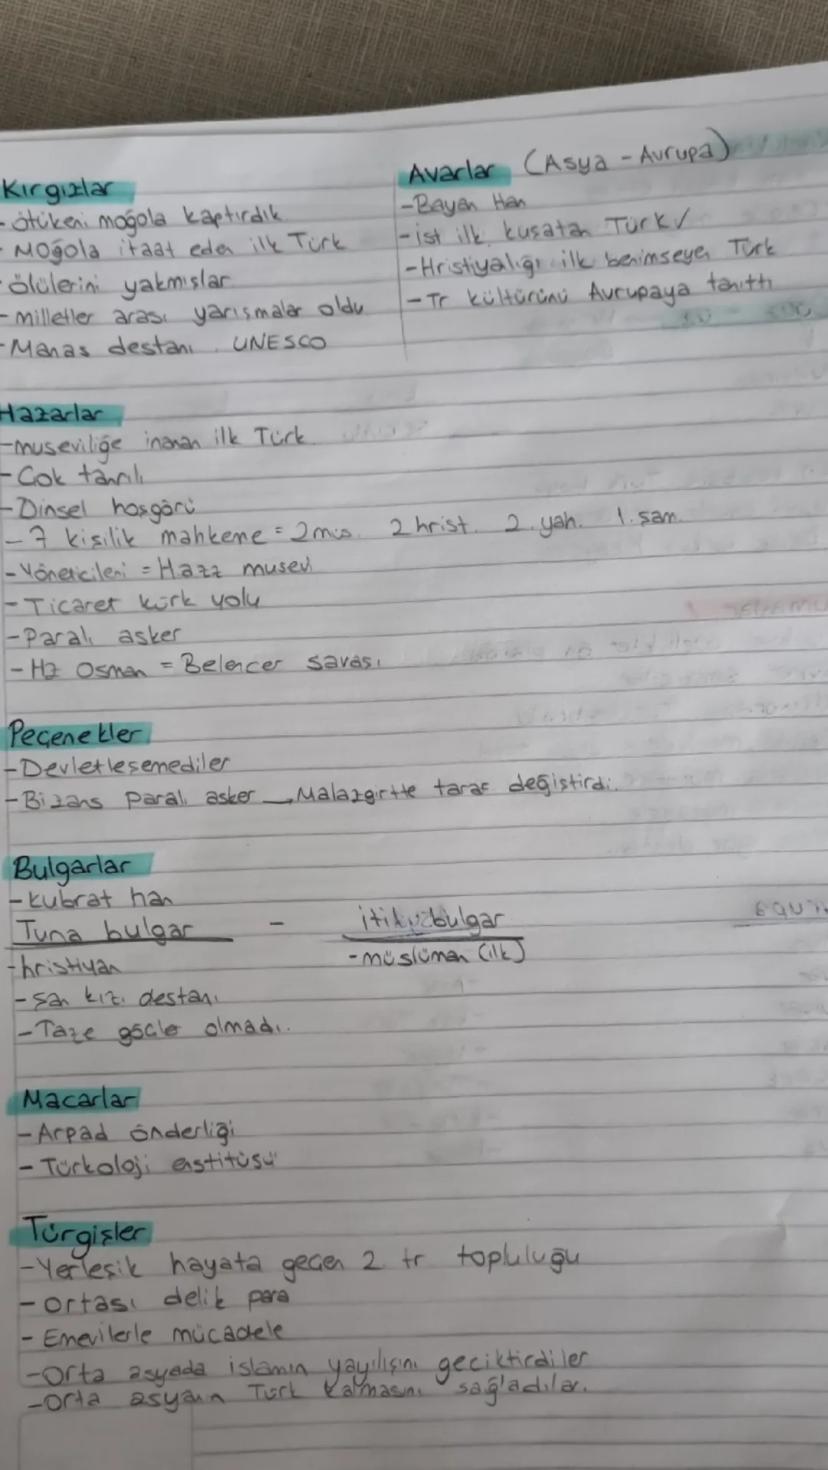 Kırgızlar
- ötükeni moğola kaptırdık
- Moğola itaat eden ilk Türk
- ölülerini yakmışlar
- milletler arası yarışmalar oldu
- Manas destanı. UNESCO
Avarlar (Asya - Avrupa)
- Bayan Han
- ist ilk kuşatan Türk ✓
- Hristiyalığı ilk benimseyen Türk
- Tr kültürünü Avrupaya tanıttı
Hazarlar
- museviliğe inanan ilk Türk
- Çok tanrılı
- Dinsel hoşgörü
- 7 kişilik mahkeme = 2 müs. 2 hrist. 2. yah. 1. şam.
- Yöneticileri = Hazz musevi
- Ticaret kürk yolu
- Paralı asker
- Hz Osman = Belencer savaşı
Peçenekler
- Devletleşemediler
- Bizans paralı asker → Malazgirtte taraf değiştirdi.
Bulgarlar
- Kubrat han
Tuna bulgar - itil bulgar
- hristiyan
- müslüman (ilk)
- kız destanı
- Taze göçler olmadı.
Macarlar
- Arpad önderliği
- Türkoloji enstitüsü
Türgişler
- Yerleşik hayata geçen 2 tr topluluğu
- ortası delik para
- Emevilerle mücadele
- Orta asyada islamın yayılışını geciktirdiler
- Orta asyanın Türk kalmasını sağladılar.